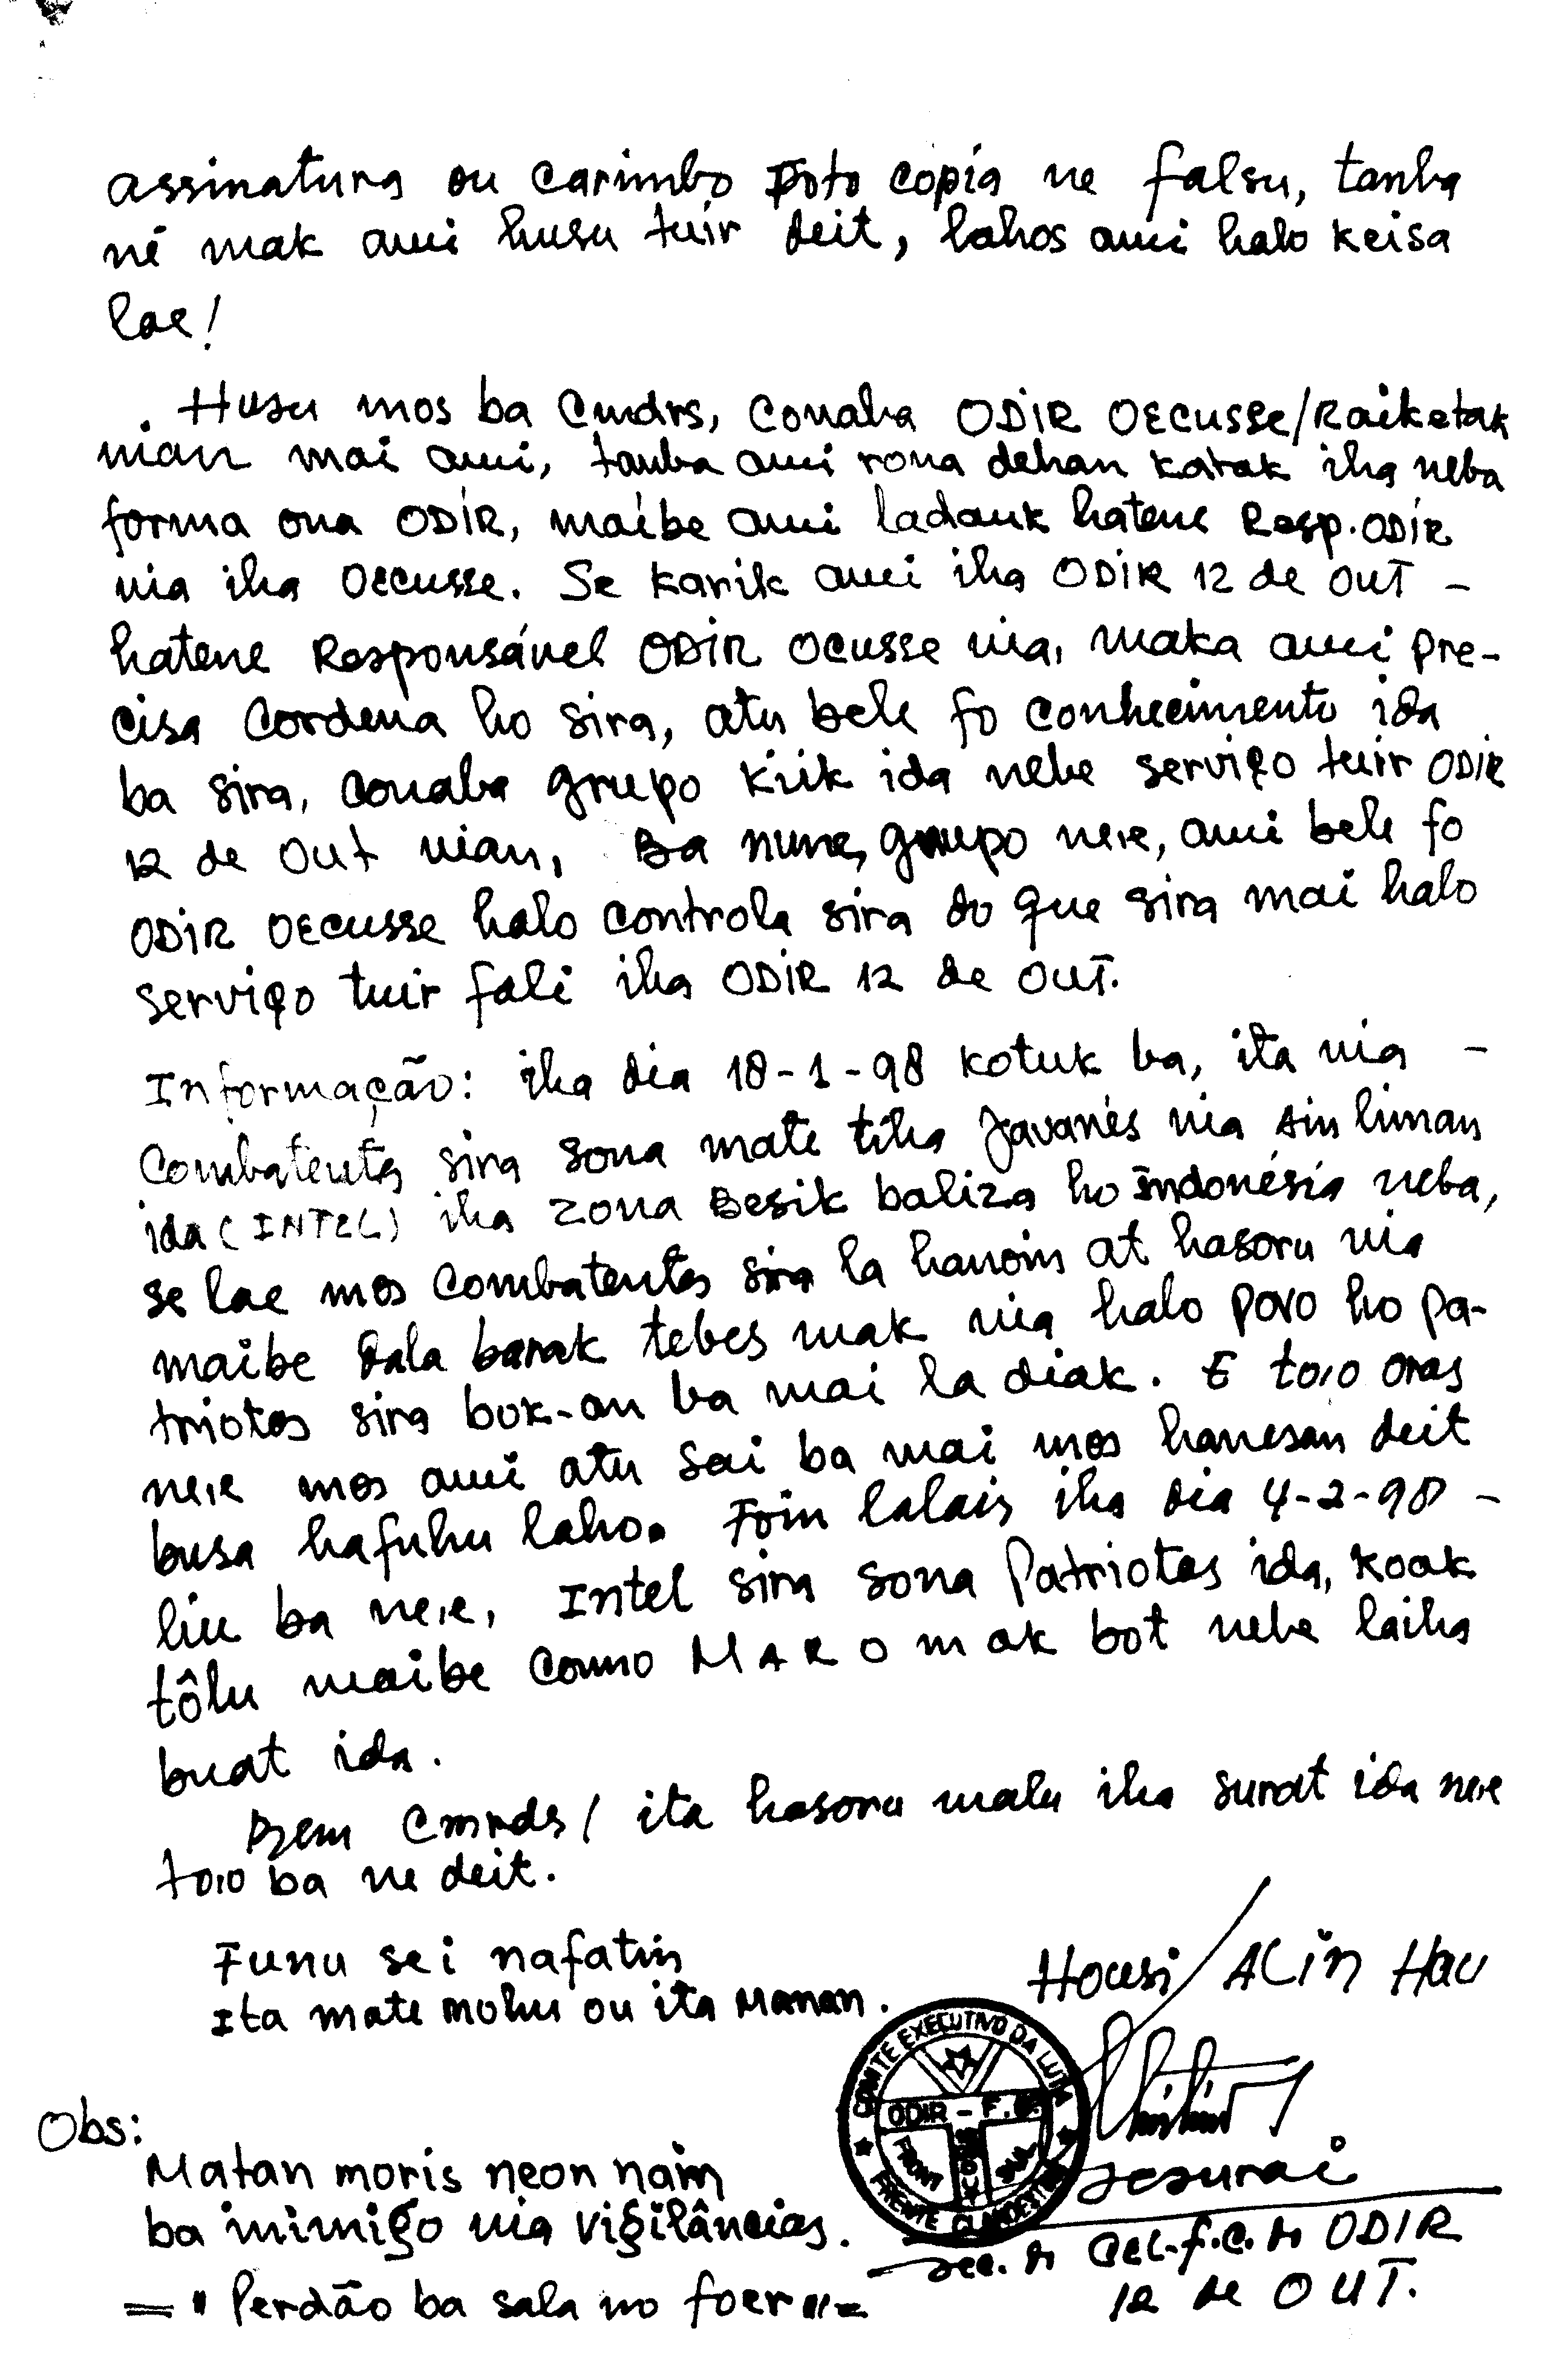 assinatura ou carimbo Foto copia ne falsu, tanba
né mak ami husu tuir deit, lahos ami halo keisa
lae!
Husu mos ba Cmdrs, Conaba ODIR OECUSSE/RAiketak
nian mai ami, tanba ami rona dehan katak iha neba
forma ona ODIR, maibe ami ladauk hatene Resp. ODIR
nia iha Oecusse. Se karik ami iha ODIR 12 de OUT -
hatene Responsável ODIR Ocusse nia, maka ami pre-
cisa Cordena ho sira, atu bele fo conhecimento ida
ba sira, conaba grupo kiik ida nebe serviço tuir ODIR
12 de Out nian, Ba nune, grupo ne,e, ami bele fo
ODIR OECUSSE halo controla sira do que sira mai halo
serviço tuir fali iha ODIR 12 de OUT.
Informação: iha dia 18-1-98 kotuk ba, ita nia -
Combatentes sira sona mate tiha Javanés nia ain liman
ida (INTEL) iha zona Besik baliza ho Indonésia neba,
se lae mos Combatentes sira la hanoin at hasoru nia
maibe dala barak tebes mak nia halo povo ho pa-
triotas sira bok-an ba mai la diak. E to,o oras
ne,e mos ami atu sai ba mai mos hanesan deit
busa hafuhu laho. Foin lalais iha dia 4-2-98 -
liu ba ne,e, Intel sira sona Patriotas ida, koak
tôlu maibe como MAROmak bot nebe laiha
buat ida.
Bem Cmrds/ ita hasoru malu iha surat ida ne,e
to,o ba ne deit.
Funu sei nafatin
Ita mate mohu ou ita Manan.
Housi/ALin Hau
COMITE EXECUTIVO DA LUTA
ODIR - F.C.
FRENTE CLANDESTINA
Sesurai
Sec. do CEL-F.C. do ODIR
12 de OUT.
Obs:
Matan moris neon nain
ba inimigo nia vigilâncias.
= " Perdão ba sala no foer " =